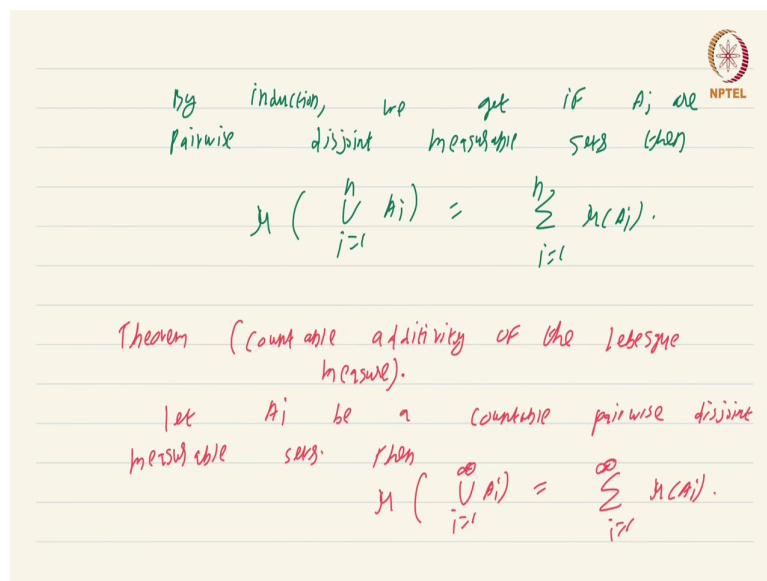 NPTEL
By induction, we get if Aj are
pairwise disjoint measurable sets then
μ ( n ∪ j=1 Aj ) = n Σ j=1 μ(Aj).
Theorem (Countable additivity of the Lebesgue
measure).
Let Aj be a countable pairwise disjoint
measurable sets. Then
μ ( ∞ ∪ j=1 Aj ) = ∞ Σ j=1 μ(Aj).